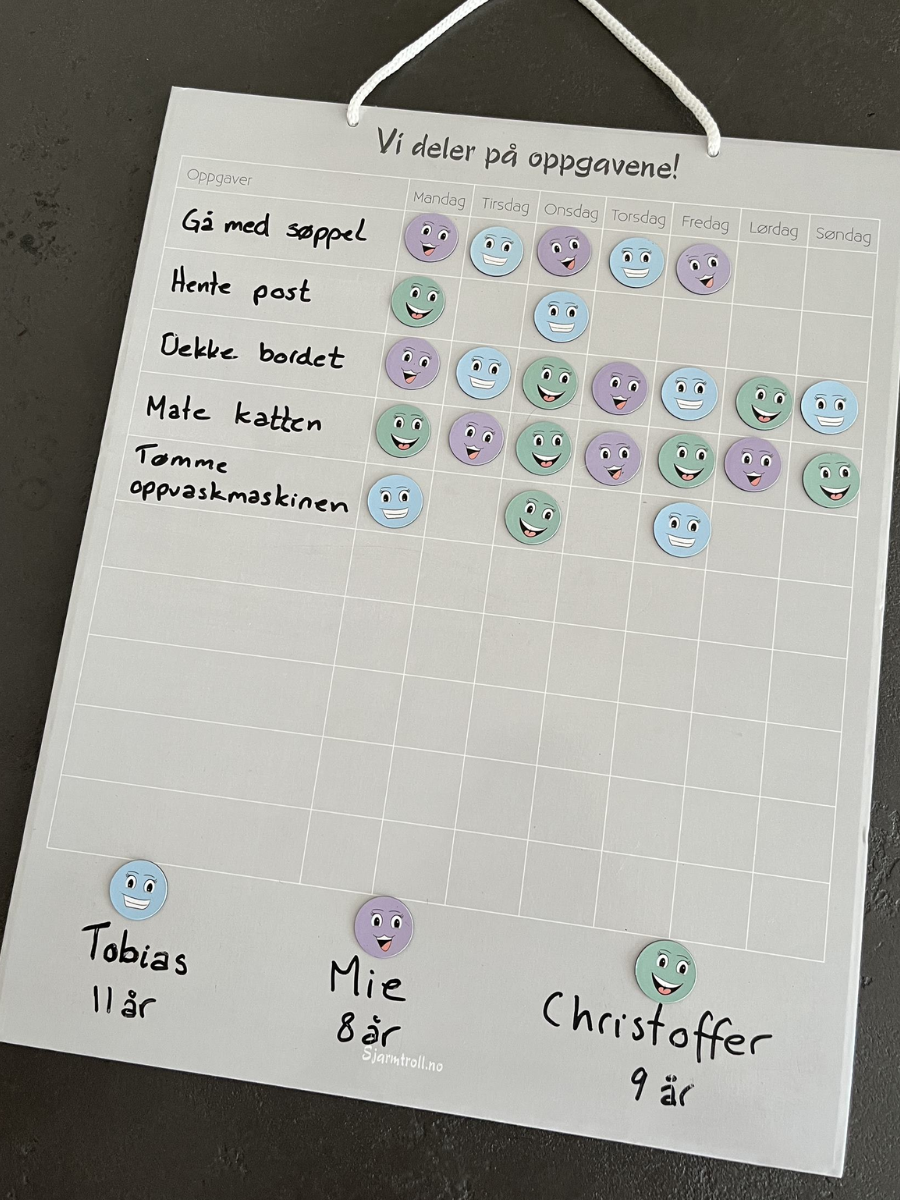 Vi deler på oppgavene!
Oppgaver Mandag Tirsdag Onsdag Torsdag Fredag Lørdag Søndag
Gå med søppel
Hente post
Dekke bordet
Mate katten
Tømme
oppvaskmaskinen
Tobias
11 år
Mie
8 år
Christoffer
9 år
Sjarmtroll.no